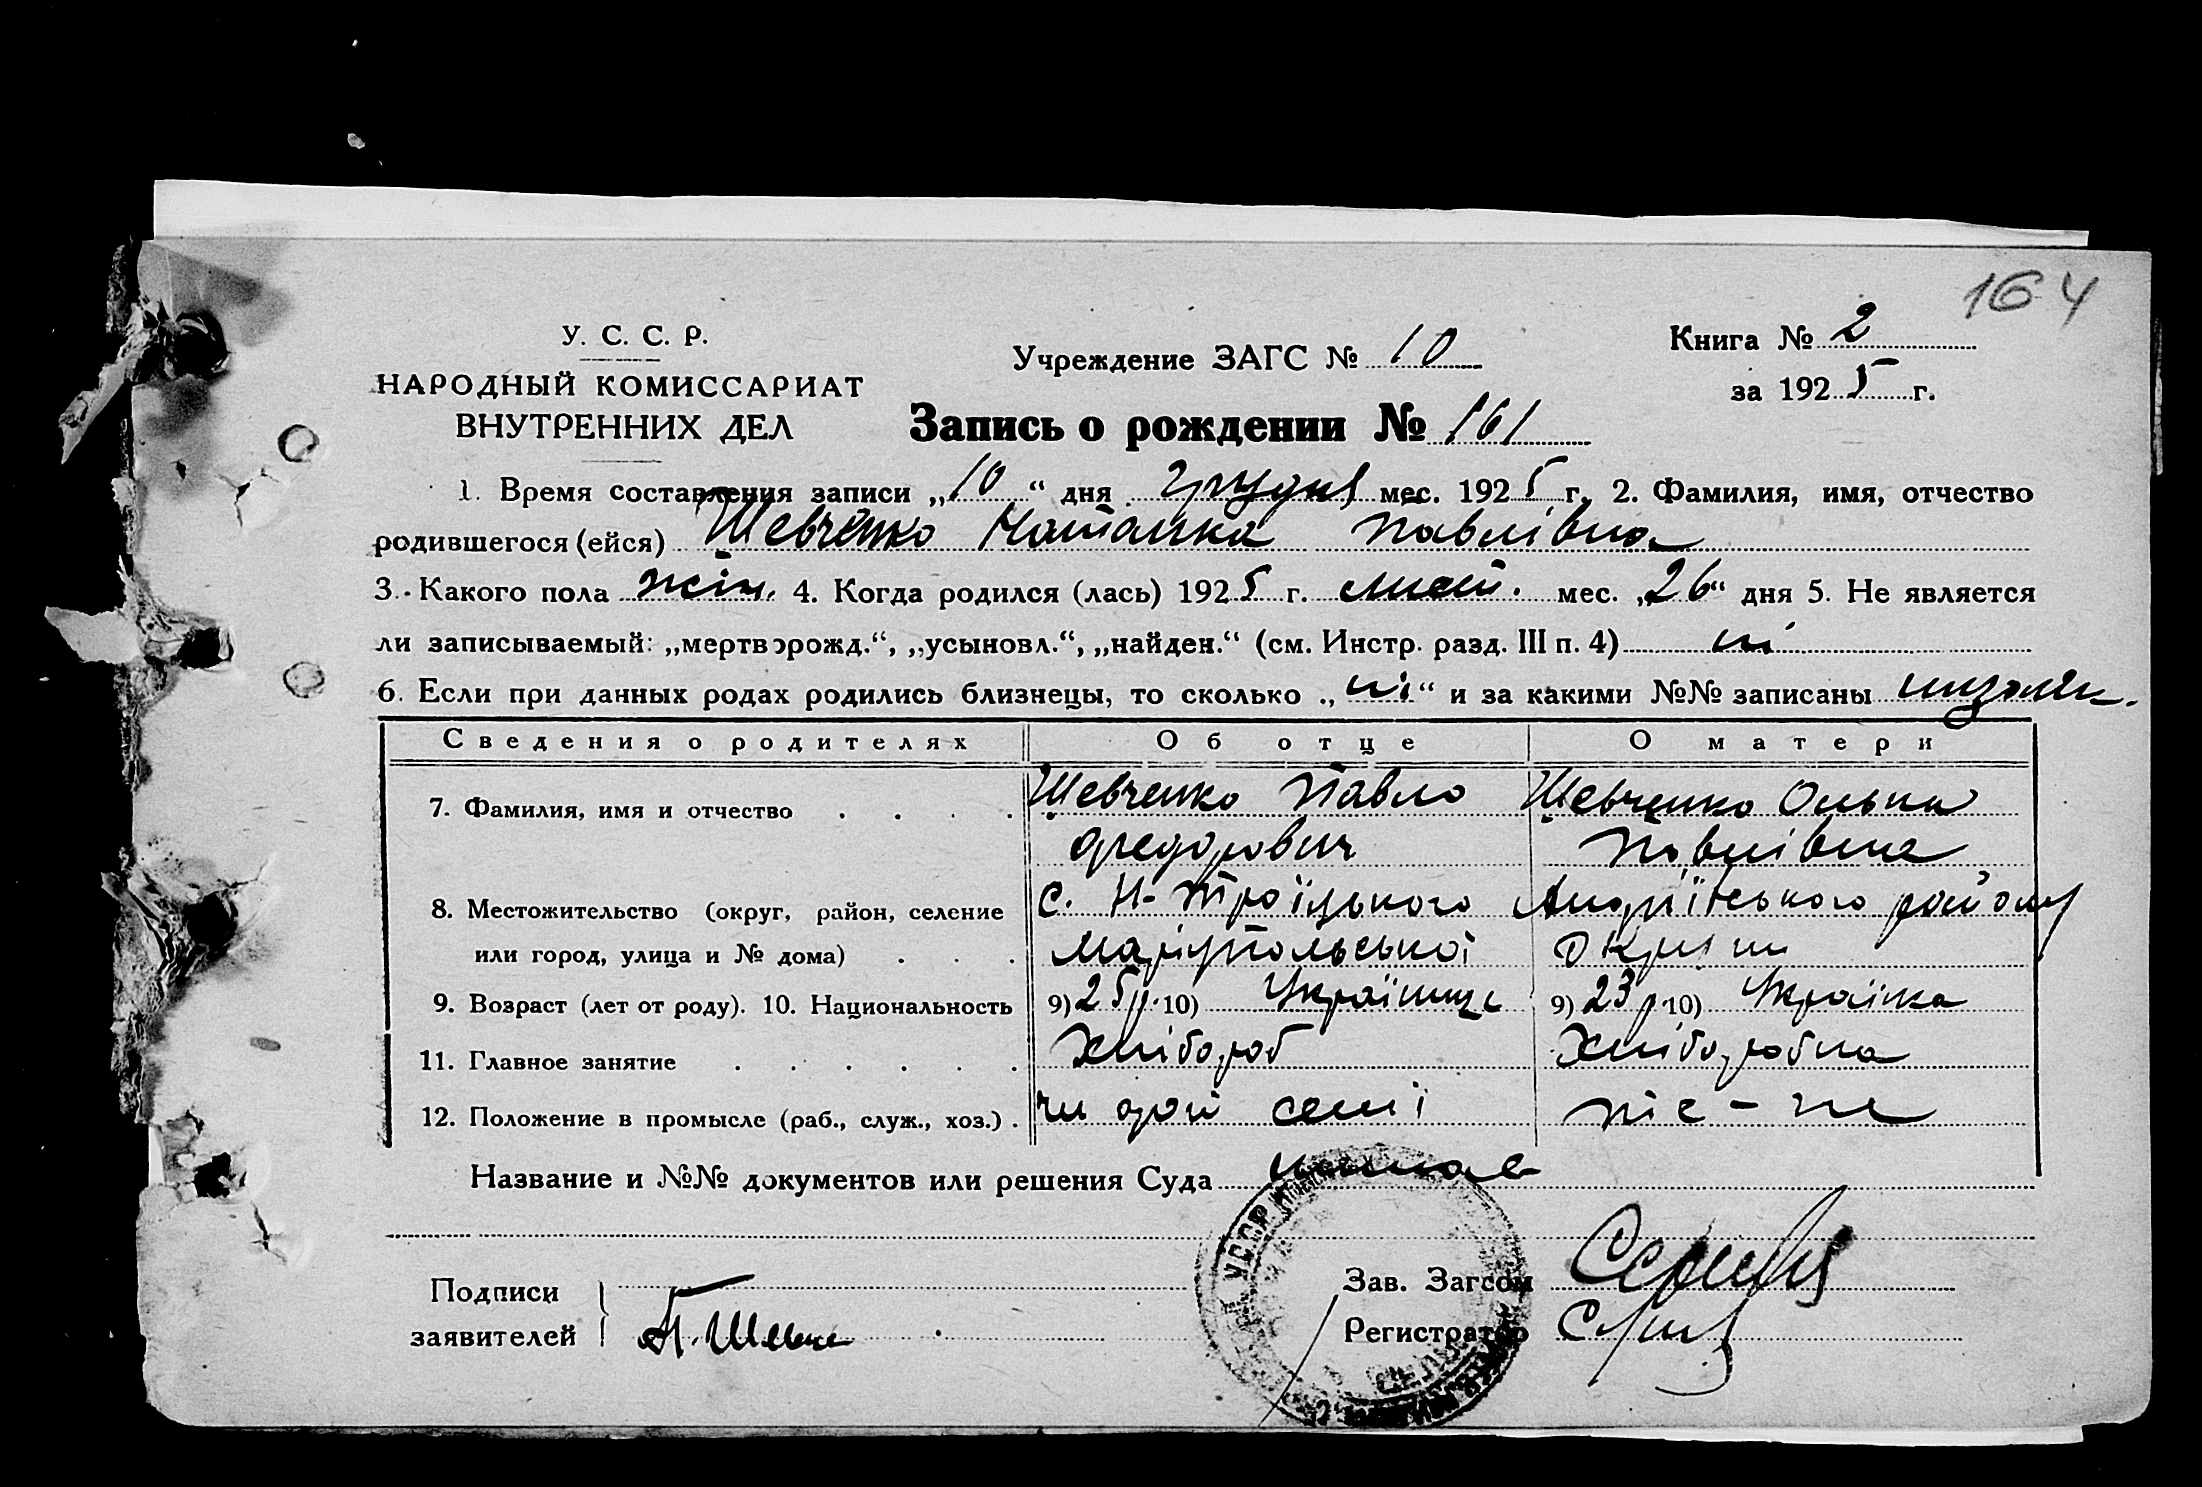 164
У. С. С. Р.
НАРОДНЫЙ КОМИССАРИАТ
ВНУТРЕННИХ ДЕЛ
Учреждение ЗАГС № 10
Книга № 2
за 1925 г.
Запись о рождении № 161
1. Время составления записи „10“ дня грудня мес. 1925 г. 2. Фамилия, имя, отчество
родившегося (ейся) Шевченко Наталка Павлівна
3. Какого пола жін. 4. Когда родился (лась) 1925 г. лист. мес. „26“ дня 5. Не является
ли записываемый: „мертворожд.“, „усыновл.“, „найден.“ (см. Инстр. разд. III п. 4) ні
6. Если при данных родах родились близнецы, то сколько „ні“ и за какими №№ записаны
Сведения о родителях Об отце О матери
7. Фамилия, имя и отчество Шевченко Павло Шевченко Ольга
Федорович Павлівна
8. Местожительство (округ, район, селение с. Н-Троїцького Андріївського району
или город, улица и № дома) Маріупольської округи
9. Возраст (лет от роду). 10. Национальность 9) 25 р. 10) Українець 9) 23 р. 10) Українка
11. Главное занятие Хлібороб Хліборобка
12. Положение в промысле (раб., служ., хоз.) семї те-ж
Название и №№ документов или решения Суда немає
Подписи
заявителей П. Шевче
Зав. Загсом
Регистратор
УССР